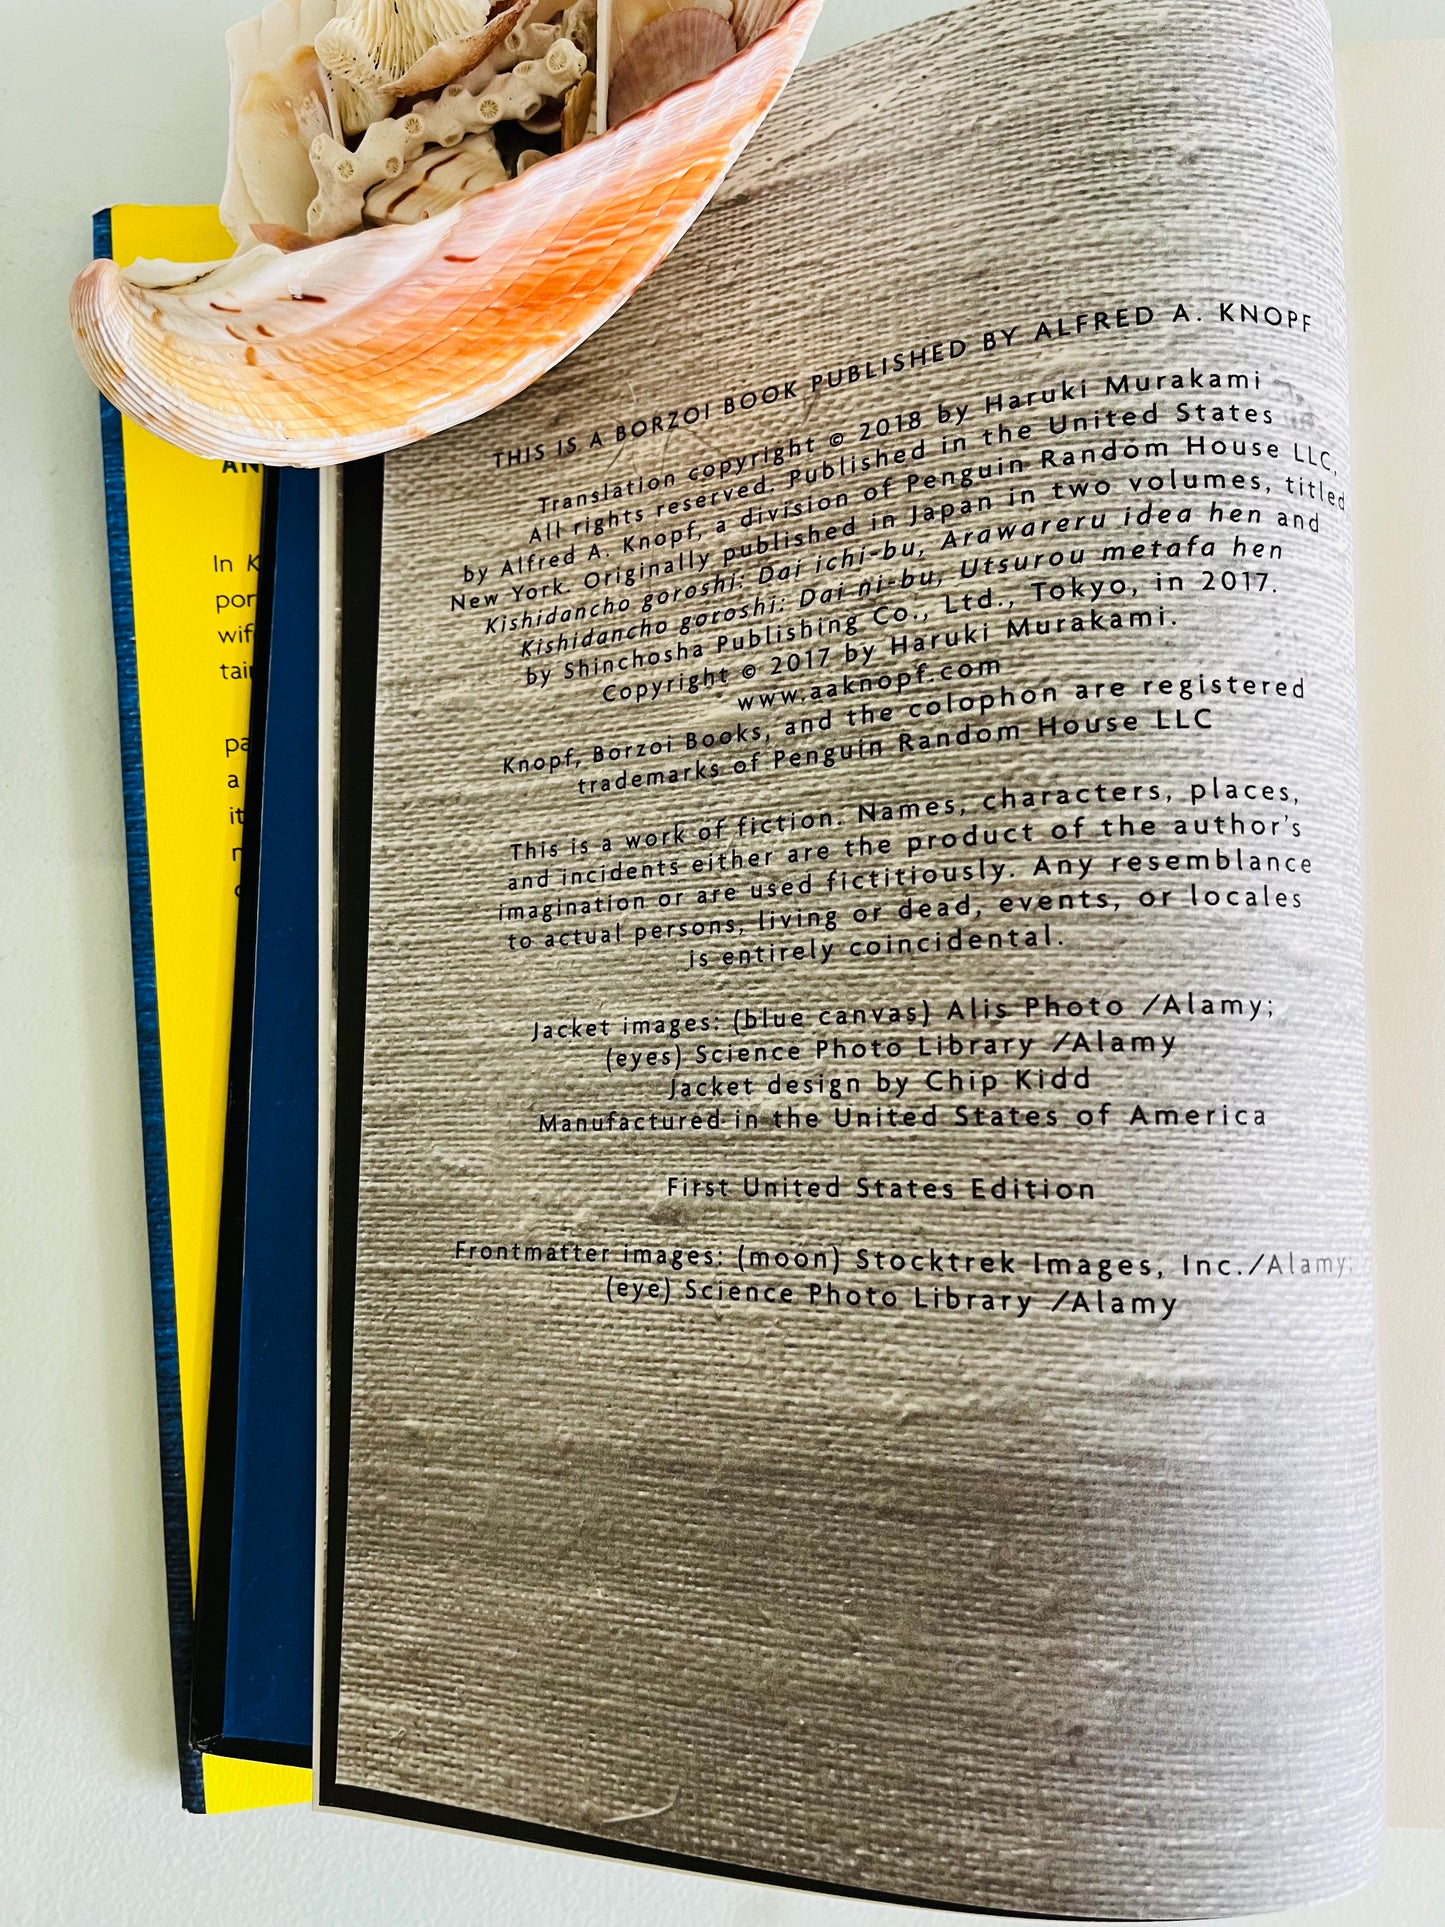 AN
In K
por
wif
tain
pa
a
it
THIS IS A BORZOI BOOK PUBLISHED BY ALFRED A. KNOPF
Translation copyright © 2018 by Haruki Murakami
All rights reserved. Published in the United States
by Alfred A. Knopf, a division of Penguin Random House LLC,
New York. Originally published in Japan in two volumes, titled
Kishidancho goroshi: Dai ichi-bu, Arawareru idea hen and
Kishidancho goroshi: Dai ni-bu, Utsurou metafa hen
by Shinchosha Publishing Co., Ltd., Tokyo, in 2017.
Copyright © 2017 by Haruki Murakami.
www.aaknopf.com
Knopf, Borzoi Books, and the colophon are registered
trademarks of Penguin Random House LLC
This is a work of fiction. Names, characters, places,
and incidents either are the product of the author's
imagination or are used fictitiously. Any resemblance
to actual persons, living or dead, events, or locales
is entirely coincidental.
Jacket images: (blue canvas) Alis Photo /Alamy;
(eyes) Science Photo Library /Alamy
Jacket design by Chip Kidd
Manufactured in the United States of America
First United States Edition
Frontmatter images: (moon) Stocktrek Images, Inc./Alamy;
(eye) Science Photo Library /Alamy